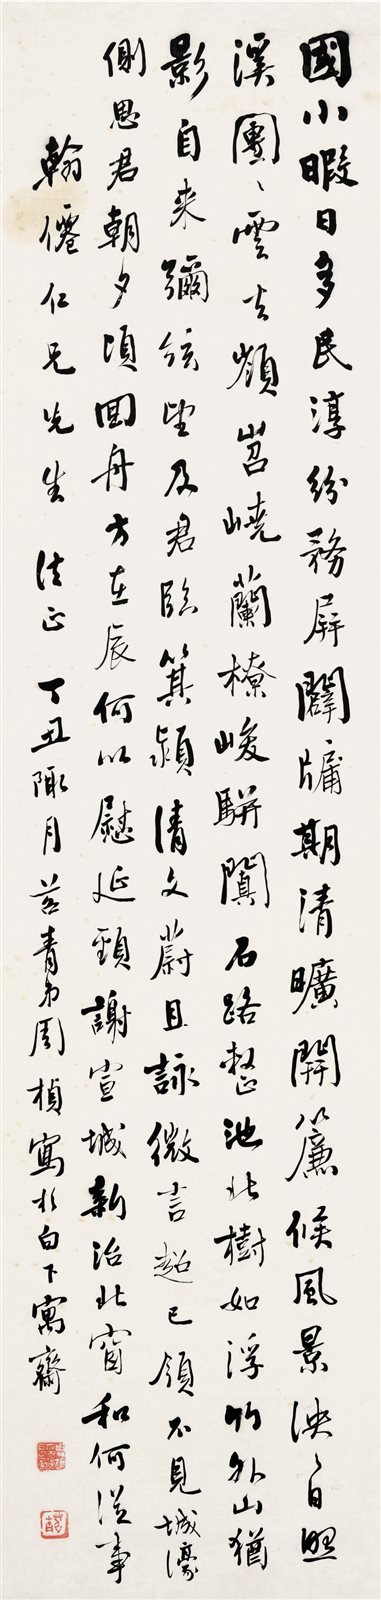 國小暇日多民淳紛務屏闢牖期清曠開簾候風景泱〻日照
溪團〻雲去嶺岧嶢蘭橑峻駢闐石路整池北樹如浮竹外山猶
影自來彌弦望及君臨箕潁清文蔚且詠微言超已領不見城濠
側思君朝夕頃回舟方在辰何以慰延頸謝宣城新治北窗和何從事
翰僊仁兄先生 法正 丁丑陬月 青弟周楨寫於白下寓齋